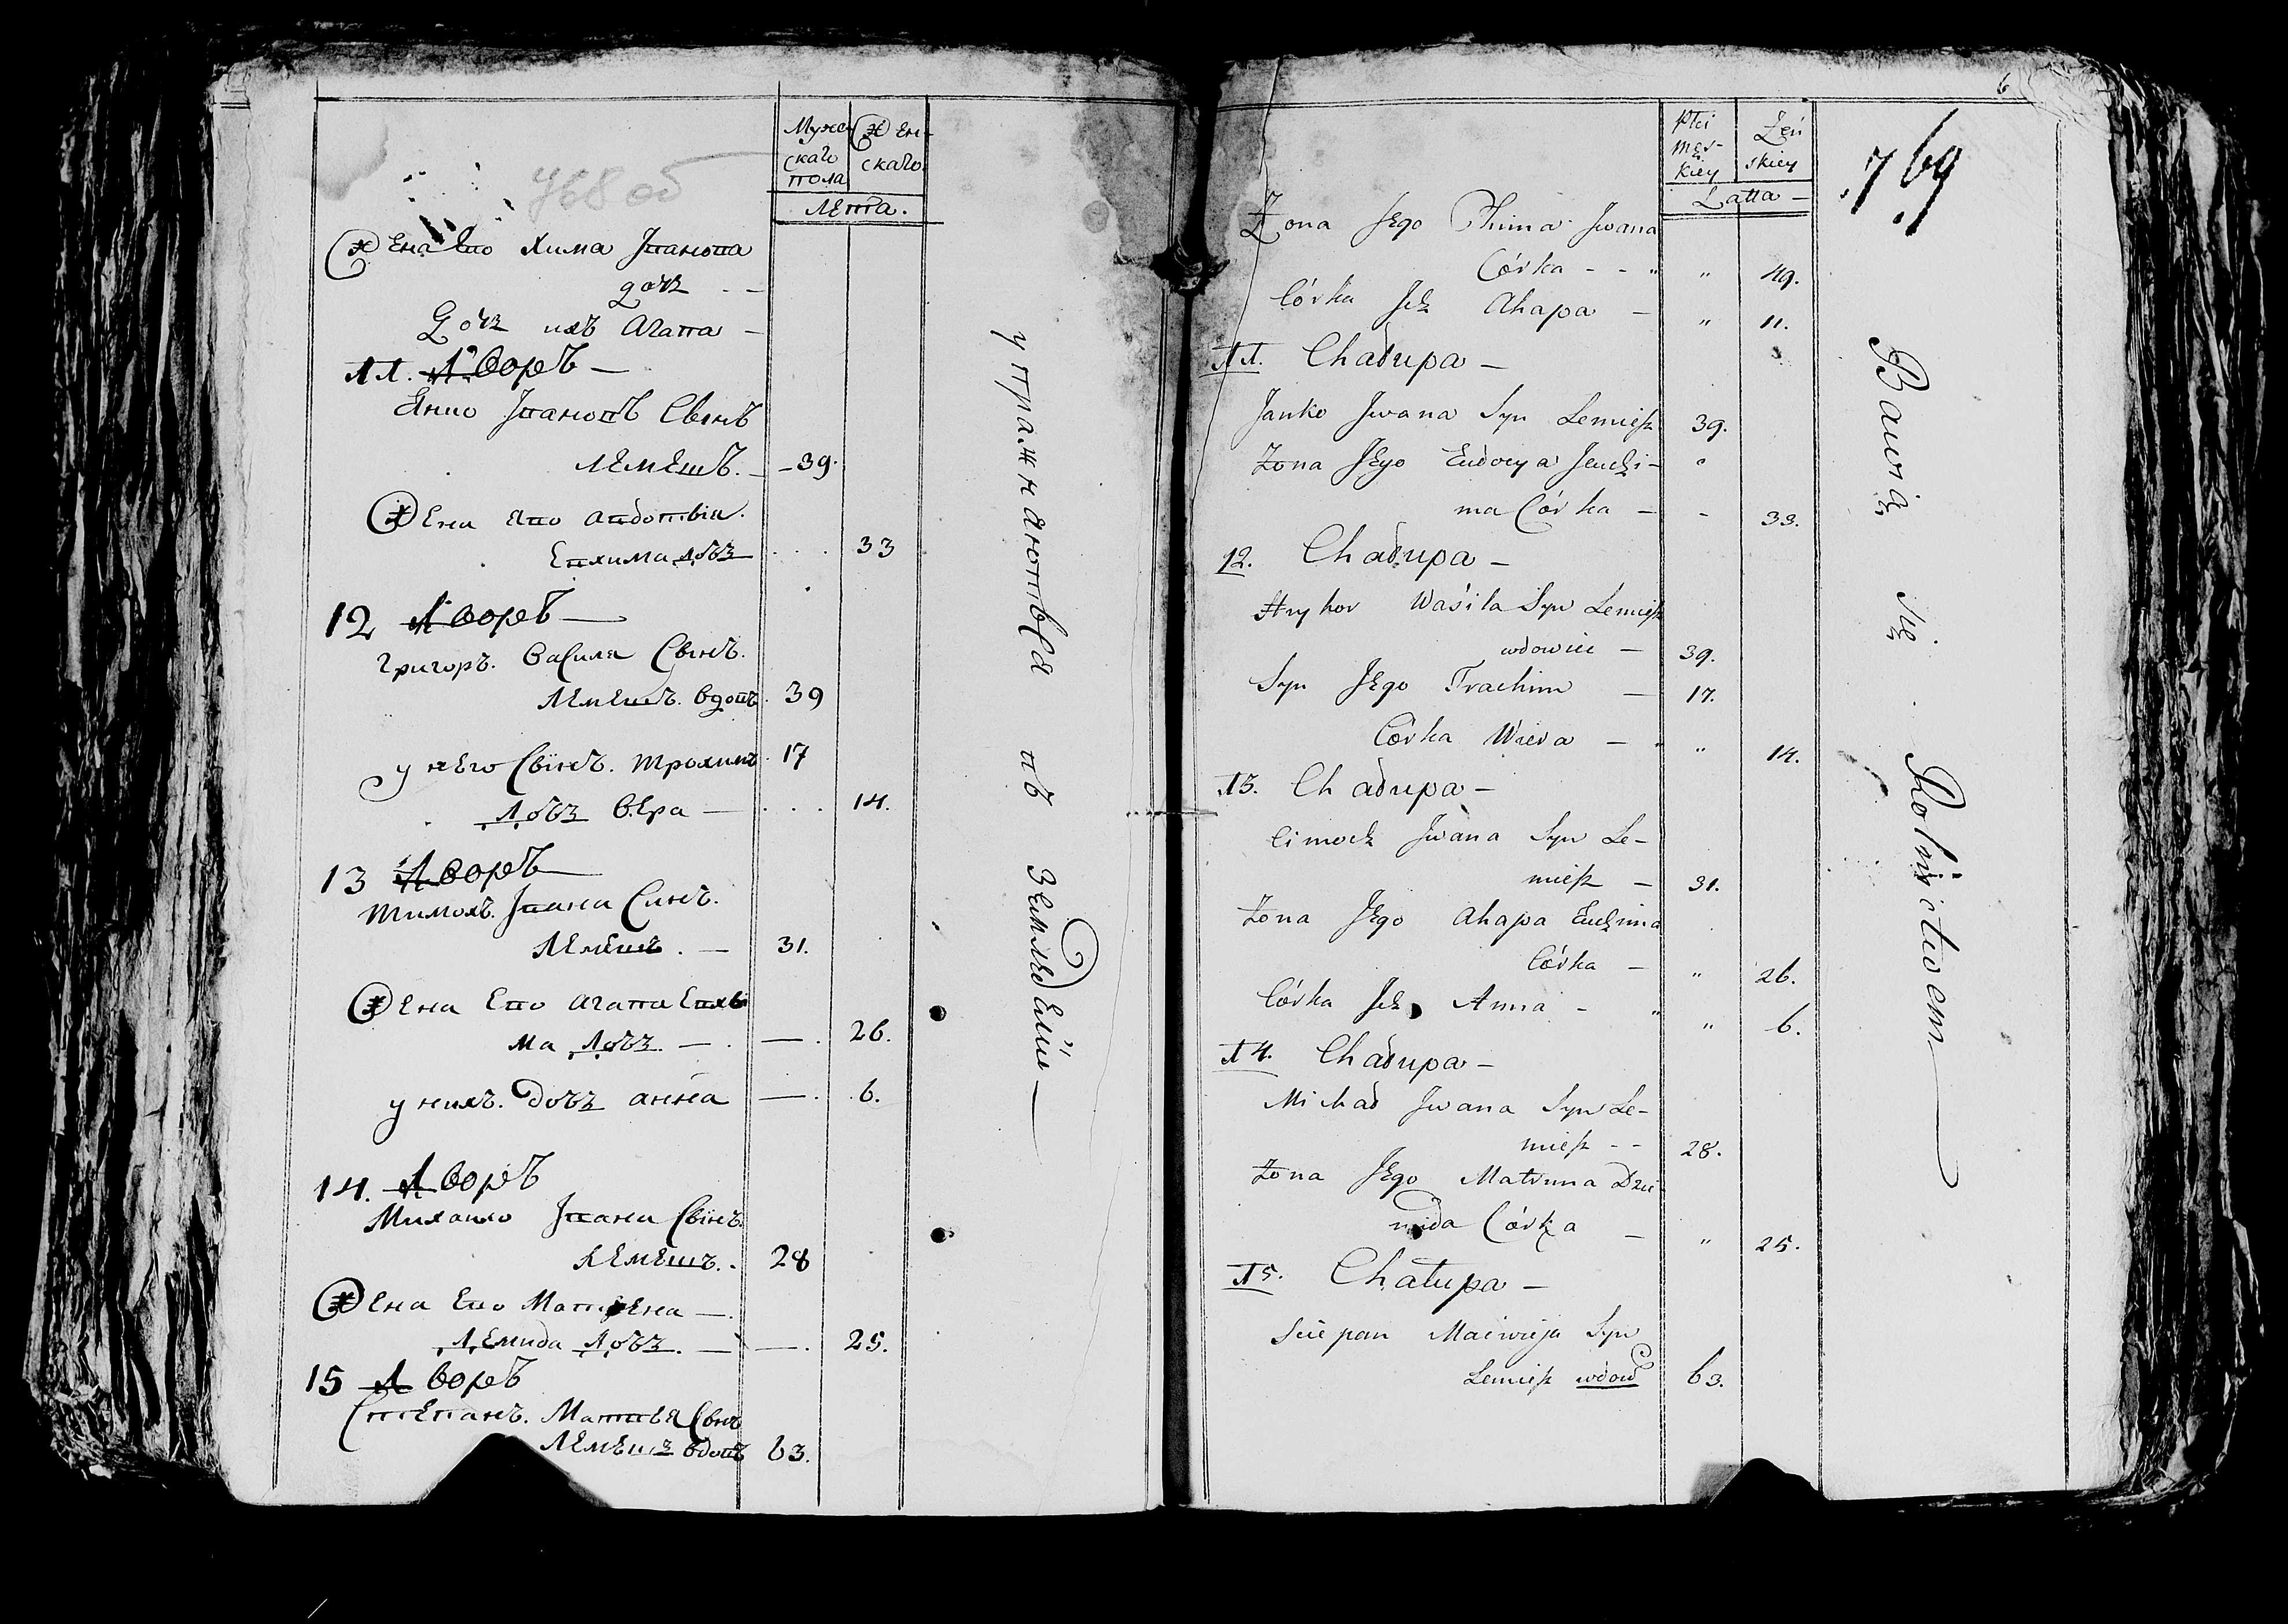 768 об
Мужескаго пола
Женскаго
Лета.
Жена Ево Хима Iванова
дочъ - -
Дочъ ихъ Агапа -
11. Дворъ -
Янко Iвановъ Сынъ
Лемешъ. - 39.
Жена ево Авдотья.
Евхима дочъ . . . 33
12 Дворъ -
Григоръ. Василя Сынъ.
Лемешъ. вдовъ. 39
у него Сынъ. Трохимъ. 17
дочъ Вера - . . . 14.
13 Дворъ -
Тимохъ. Iвана Сынъ.
Лемешъ. - 31.
Жена Ево Агапа Евхи
ма дочъ. - . - . 26.
у нихъ. дочъ анна - . 6.
14. Дворъ
Михайло Iвана Сынъ.
Лемешъ. 28
Жена Ево Матрена -.
Демида дочъ. - - . 25.
15 Дворъ
Степанъ. Матвея Сынъ
Лемешъ вдовъ 63.
упражняются въ земледелiи -
6
769
Płci Męskiey
Żeńskiey
Latta -
Żona Jego Chima Jwana
Córka - - " " 49.
Córka Ich Ahapa - " 11.
11. Chałupa -
Janko Jwana Syn Lemiesz 39.
Żona Jego Eudocya Jeuchi-
ma Córka - - 33.
12. Chałupa -
Hryhor Wasila Syn Lemiesz
wdowiec - 39.
Syn Jego Trachim - 17.
Córka Wiera - " " 14.
13. Chałupa -
Cimoch Jwana Syn Le-
miesz - 31.
Żona Jego Ahapa Euchima
Córka - " 26.
Córka Ich Anna - " " 6.
14. Chałupa -
Michał Jwana Syn Le-
miesz - - 28.
Żona Jego Matruna Dzie
mida Córka - " 25.
15. Chałupa -
Sciepan Maciwieja Syn
Lemiesz wdow 63.
Bawią się Rolnictwem